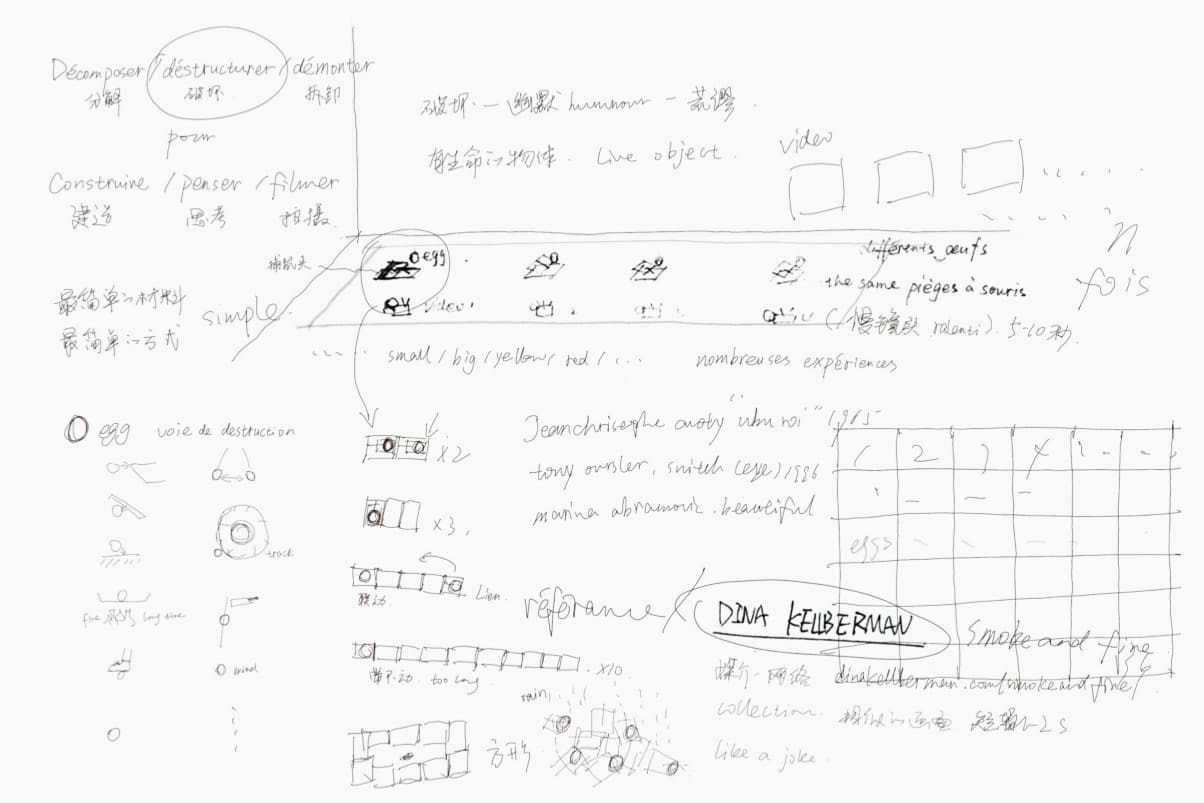 Décomposer / déstructurer / démonter
分解 破坏 拆卸
pour
Construire / penser / filmer
建造 思考 拍摄
破坏 — 幽默 humour — 荒谬
有生命的物体. Live object.
video
n
fois
egg
捕鼠夹
video.
différents oeufs
the same pièges à souris
(慢镜头 ralenti). 5-10秒.
最简单的材料
最简单的方式
simple.
small / big / yellow / red / ...
nombreuses expériences
egg voie de destruction
track
long time
wind
x2
x3.
Lien.
x10
too long
方形
rain,
"ubu roi"
tony oursler, switch (eye) 1996
marina abramovic. beautiful
référance
DINA KELLBERMAN
smoke and fire
媒介-网络 dinakellberman.com/smokeandfire/
collection. 1-2s
like a joke.
1 2 3 4
eggs